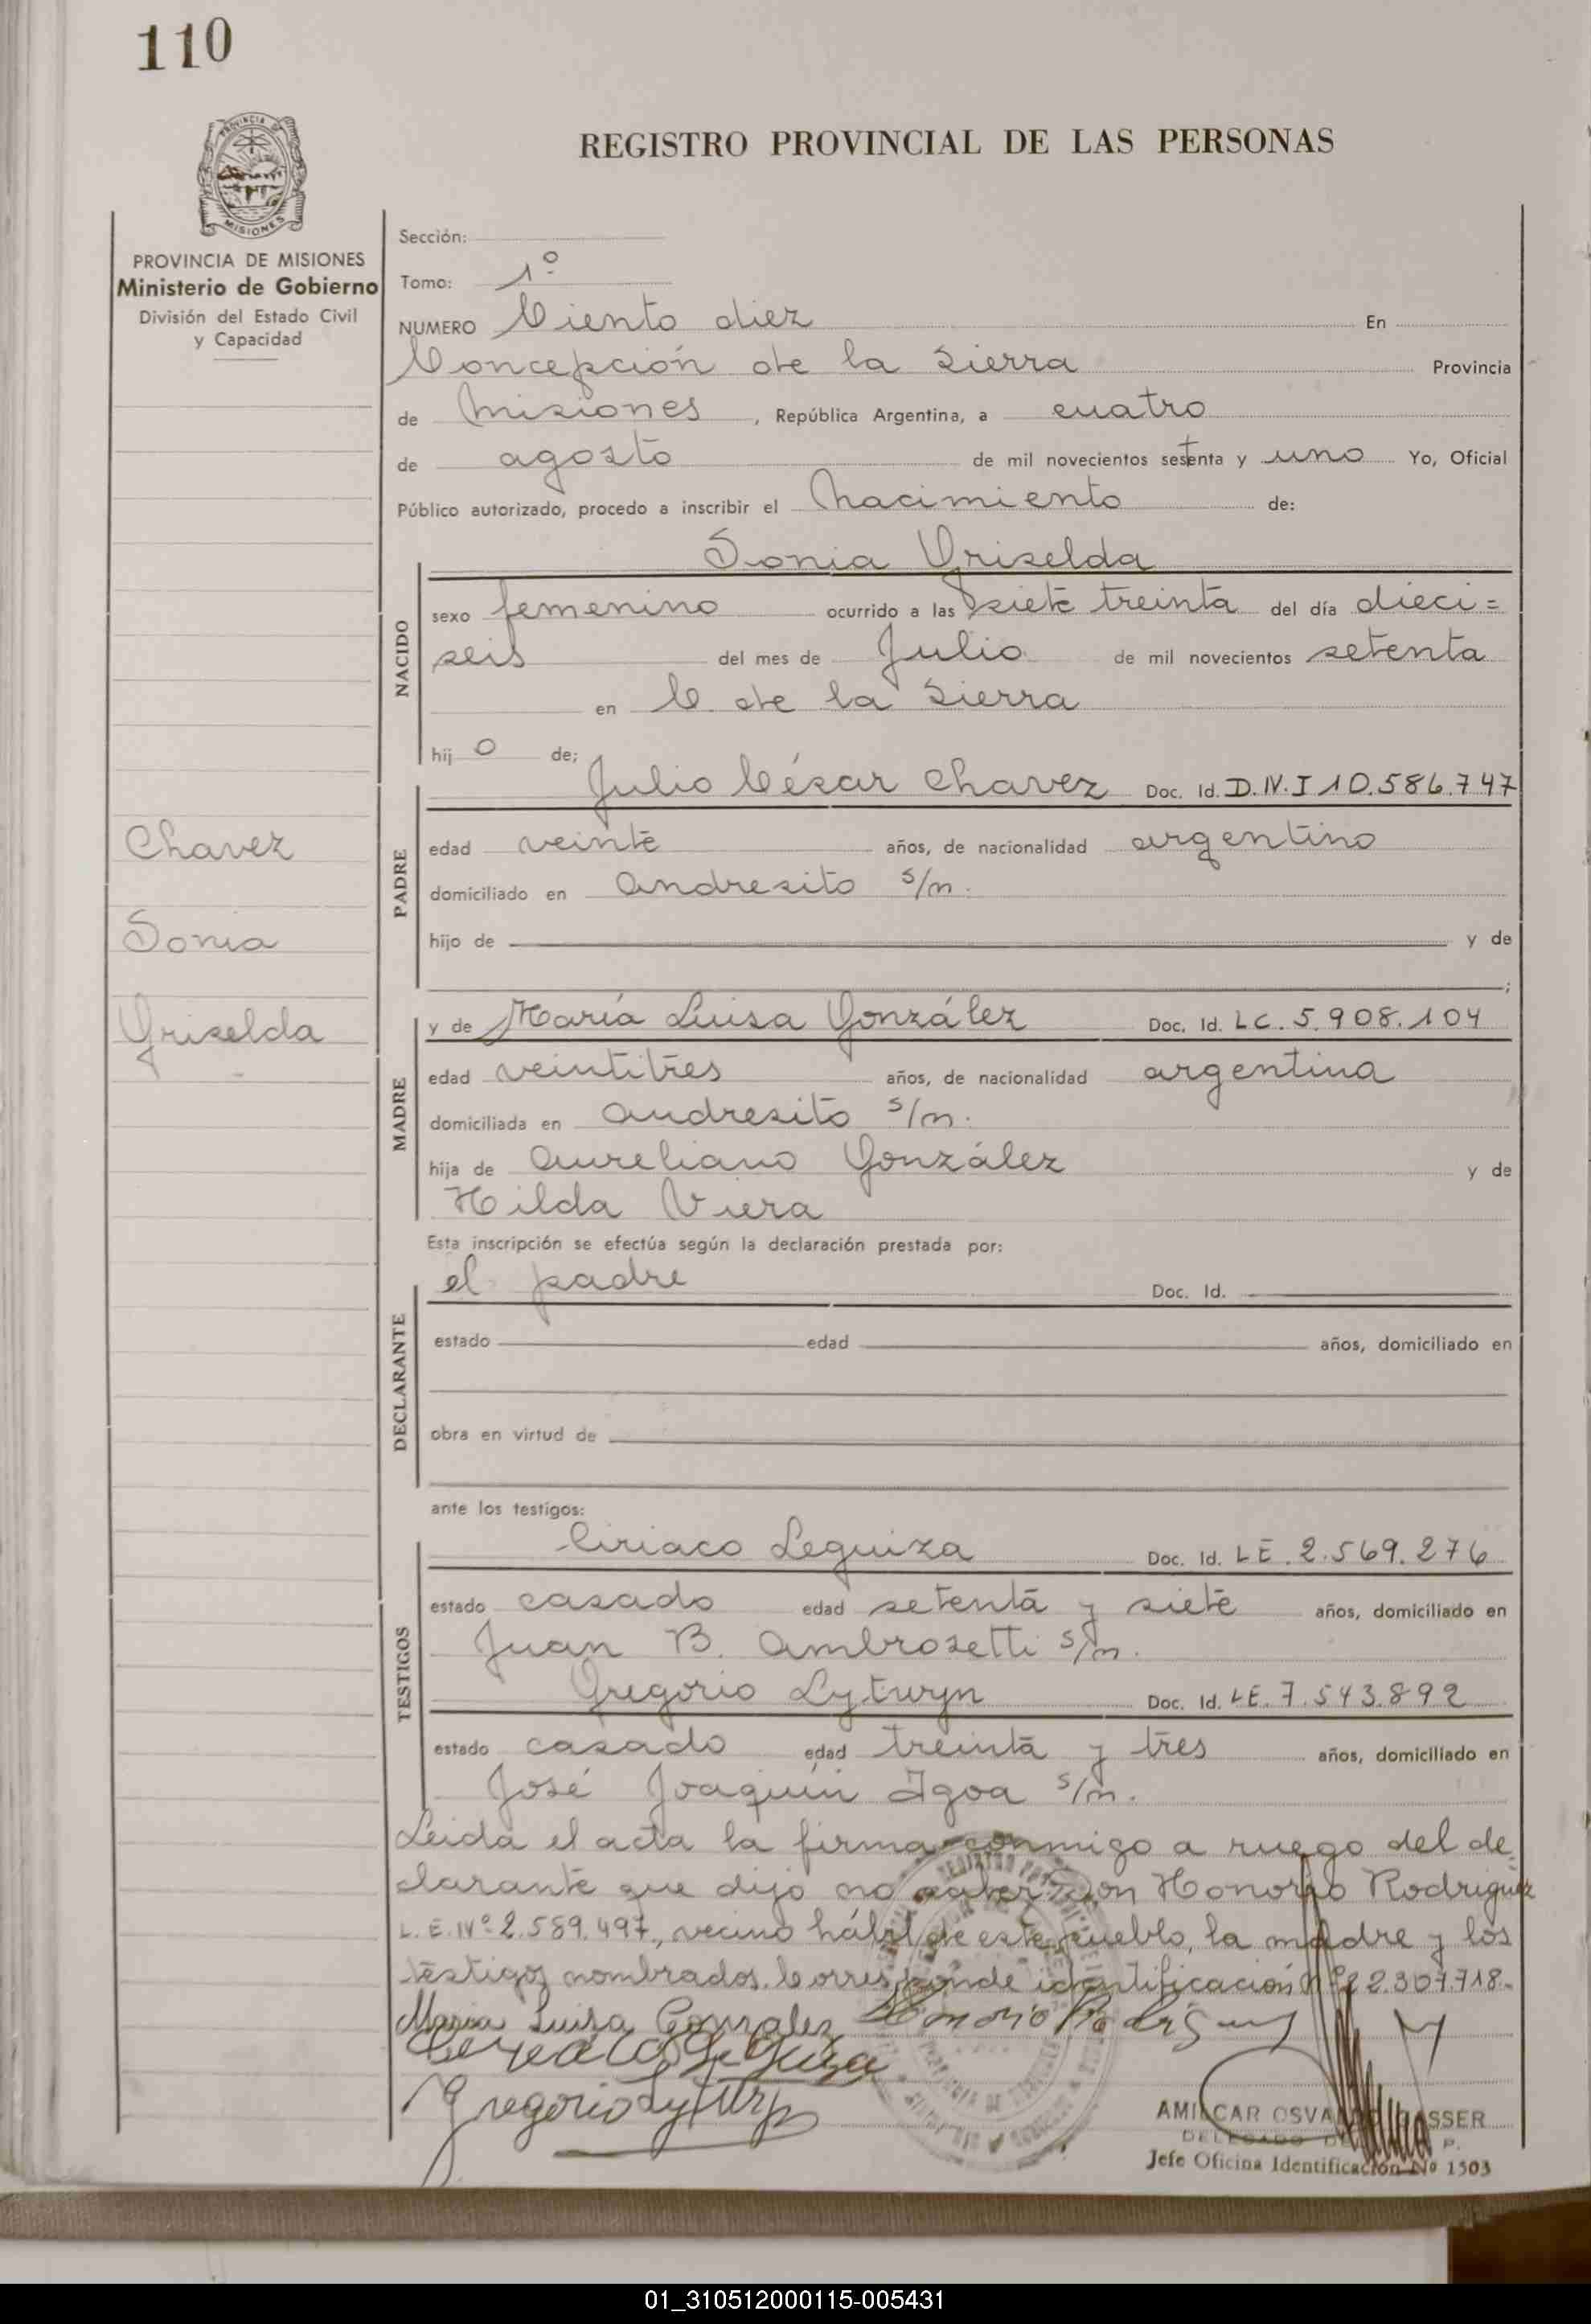 110
PROVINCIA DE
MISIONES
REGISTRO PROVINCIAL DE LAS PERSONAS
PROVINCIA DE MISIONES
Ministerio de Gobierno
División del Estado Civil
y Capacidad
Chavez
Sonia
Griselda
Sección:
Tomo: 1º
NUMERO Ciento diez En
Concepción de la Sierra Provincia
de Misiones, República Argentina, a cuatro
de agosto de mil novecientos setenta y uno Yo, Oficial
Público autorizado, procedo a inscribir el Nacimiento de:
Sonia Griselda
NACIDO
sexo femenino ocurrido a las siete treinta del día dieci=
seis del mes de Julio de mil novecientos setenta
en C. de la Sierra
hij o de;
Julio César Chavez Doc. Id. D.N.I 10.586.747
PADRE
edad veinte años, de nacionalidad argentino
domiciliado en Andresito s/n.
hijo de y de
;
y de María Luisa González Doc. Id. L.C. 5.908.104
MADRE
edad veintitres años, de nacionalidad argentina
domiciliada en Andresito s/n.
hija de Aureliano González y de
Hilda Viera
Esta inscripción se efectúa según la declaración prestada por:
el padre Doc. Id.
DECLARANTE
estado edad años, domiciliado en
obra en virtud de
ante los testigos:
Ciriaco Leguiza Doc. Id. L E. 2.569.276
TESTIGOS
estado casado edad setenta y siete años, domiciliado en
Juan B. Ambrosetti s/n.
Gregorio Lytwyn Doc. Id. L E. 7.543.892
estado casado edad treinta y tres años, domiciliado en
José Joaquín Igoa s/n.
Leida el acta la firma conmigo a ruego del de
clarante que dijo no saber Don Honorio Rodriguez
L.E. Nº 2.589.497, vecino hábil de este pueblo, la madre y los
testigos nombrados. Corresponde identificación Nº 22.307.718.
Maria Luisa Gonzalez Honorio Rodriguez
Ciriaco Leguiza
Gregorio Lytwyn
AMILCAR OSVALDO GASSER
Jefe Oficina Identificación Nº 1503
01_310512000115-005431